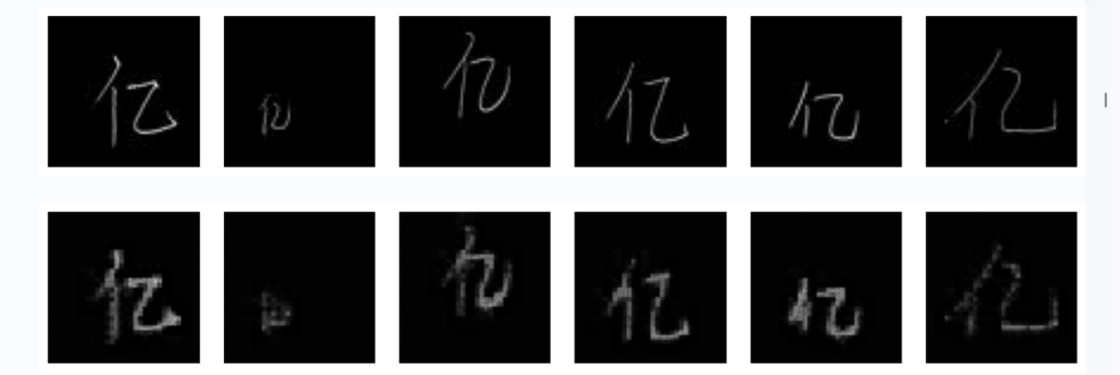 亿 亿 亿 亿 亿 亿
亿 亿 亿 亿 亿